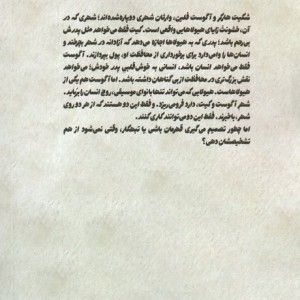 کیت هارکر و آگوست فلین، وارثان شهری دوپاره‌شده‌اند؛ شهری که در
آن، خشونت زایای هیولاهایی واقعی است. کیت فقط می‌خواهد مثل پدرش
بی‌رحم باشد؛ پدری که به هیولاها اجازه می‌دهد که آزادانه در شهر بچرخند و
انسان‌ها را وامی‌دارد برای برخورداری از محافظت او، پول بپردازند. آگوست
فقط می‌خواهد انسان باشد. انسانی به خوش‌قلبی پدر خودش؛ می‌خواهد
نقش بزرگ‌تری در محافظت از بی‌گناهان داشته باشد. اما آگوست هم یکی از
هیولاهاست. هیولایی که می‌تواند تنها با نوای موسیقی، روح انسان را برباید.
شهر آگوست و کیت، دارد فرومی‌ریزد. و فقط این دو هستند که از هر دو روی
شهر، باخبرند. فقط این دو می‌توانند کاری کنند.
اما چطور تصمیم می‌گیری قهرمان باشی یا تبهکار، وقتی نمی‌شود از هم
تشخیصشان دهی؟